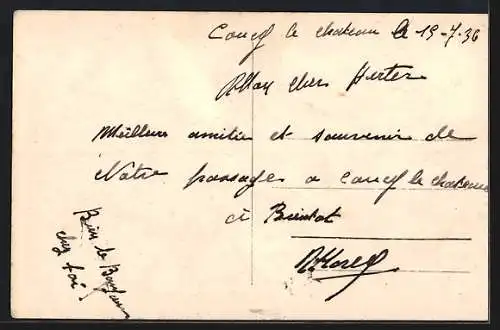 Coucy le chateau le 19-7-36
Mon cher
Meilleure amitie et souvenir de
Notre passage a Coucy le chateau
à Bientot
Bien le Bonjour
chez toi